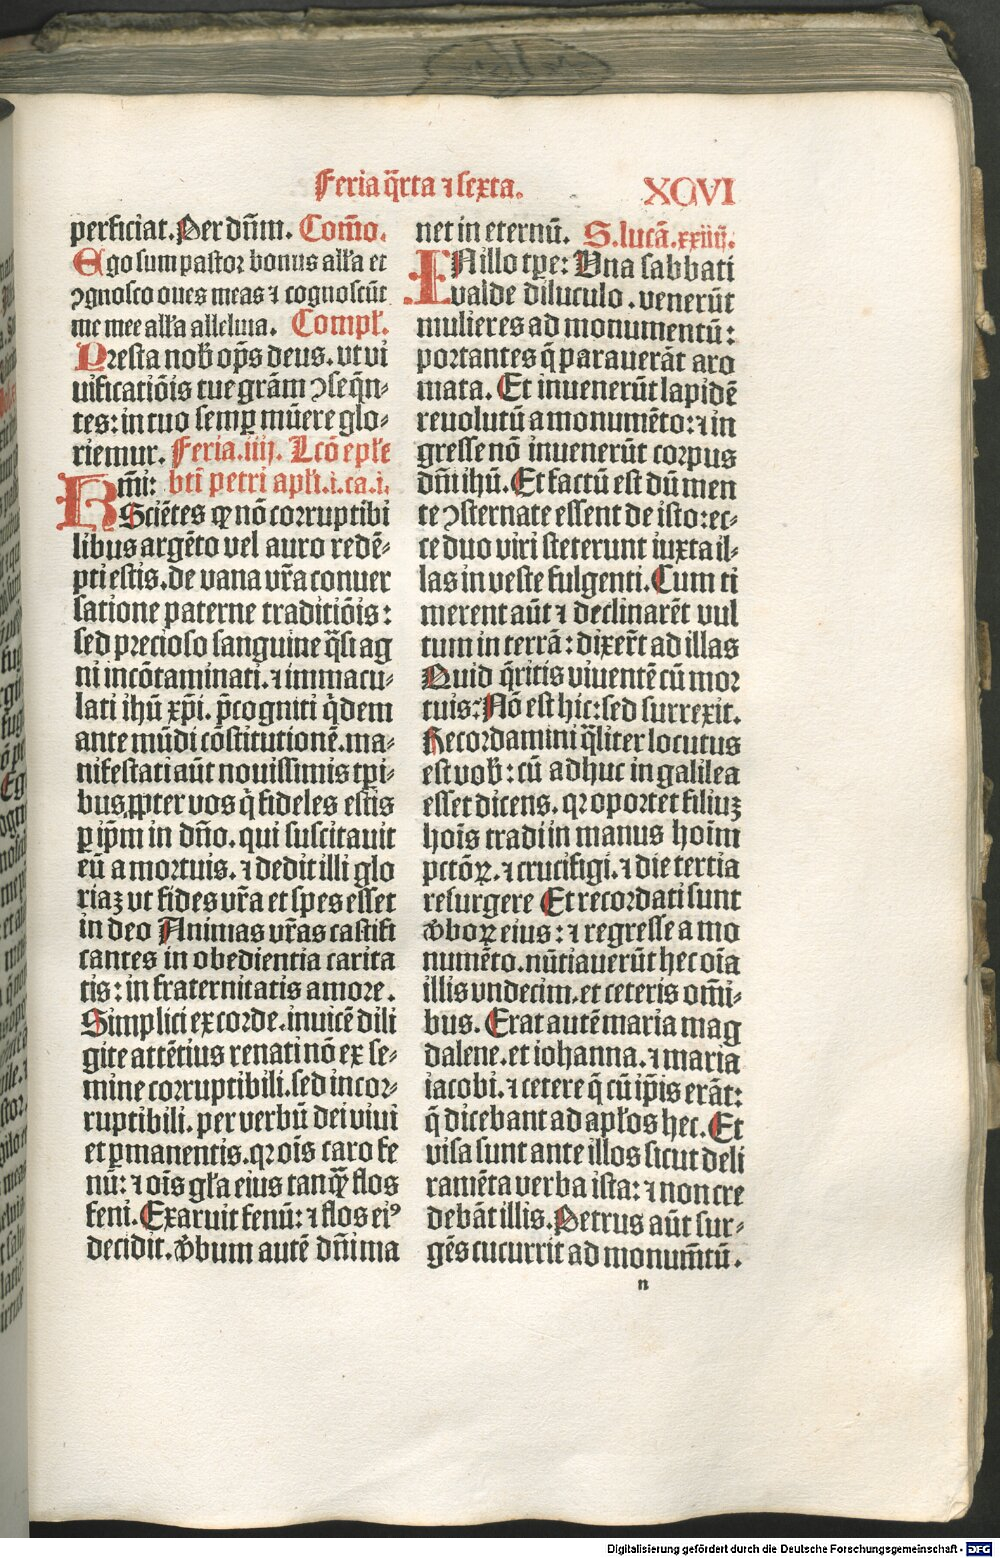 Feria q̄rta ⁊ sexta. XCVI
perficiat. Per dn̄m. Com̄o.
Ego sum pastor bonus all'a et
ꝯgnosco oues meas ⁊ cognoscūt
me mee all'a alleluia. Compl'.
Presta nob' op̄s deus. vt vi
uificatiōis tue grām ꝯseq̄n-
tes: in tuo semꝑ mūere glo-
riemur. Feria.iiij. Lcō epl'e
bti petri apl'i.i.ca.i.
Fr̄mi:
Scientes ꝙ nō corruptibi
libus argēto vel auro redē-
pti estis. de vana vr̄a conuer
satione paterne traditiōis:
sed precioso sanguine q̄si ag
ni incōtaminati. ⁊ immacu-
lati ihū xp̄i. p̄cogniti q̇dem
ante mūdi cōstitutionē. ma-
nifestati aūt nouissimis tp̄i-
bus ꝓpter vos q̇ fideles estis
ꝑ ip̄m in dn̄o. qui suscitauit
eū a mortuis. ⁊ dedit illi glo
riaꝫ vt fides vr̄a et spes esset
in deo Animas vr̄as castifi
cantes in obedientia carita
tis: in fraternitatis amore.
Simplici ex corde. inuicē dili
gite attētius renati nō ex se-
mine corruptibili. sed incor-
ruptibili. per verbū dei viui
et ꝑmanentis. qꝛ oīs caro fe
nū: ⁊ oīs gl'a eius tanꝙ̄ flos
feni. Exaruit fenū: ⁊ flos eiꝰ
decidit. v̓bum autē dn̄i ma
net in eternū. S. lucā. xxiiij.
IN illo tꝑe: Una sabbati
valde diluculo. venerūt
mulieres ad monumentū:
portantes q̄ parauerāt aro
mata. Et inuenerūt lapidē
reuolutū a monumēto: ⁊ in
gresse nō inuenerūt corpus
dn̄i ihū. Et factū est dū men
te ꝯsternate essent de isto: ec-
ce duo viri steterunt iuxta il-
las in veste fulgenti. Cum ti
merent aūt ⁊ declinarēt vul
tum in terrā: dixer̄t ad illas
Quid q̄ritis viuentē cū mor
tuis: Nō est hic: sed surrexit.
Recordamini q̄liter locutus
est vob': cū adhuc in galilea
esset dicens. qꝛ oportet filiuꝫ
hoīs tradi in manus hoīm
pctōꝝ. ⁊ crucifigi. ⁊ die tertia
resurgere Et recordati sunt
v̓boꝝ eius: ⁊ regresse a mo
numēto. nūtiauerūt hec oīa
illis vndecim. et ceteris om̄i-
bus. Erat autē maria mag
dalene. et iohanna. ⁊ maria
iacobi. ⁊ cetere q̄ cū ip̄is erāt:
q̄ dicebant ad apl'os hec. Et
visa sunt ante illos sicut deli
ramēta verba ista: ⁊ non cre
debāt illis. Petrus aūt sur-
gēs cucurrit ad monum̄tū.
n
Digitalisierung gefördert durch die Deutsche Forschungsgemeinschaft - DFG